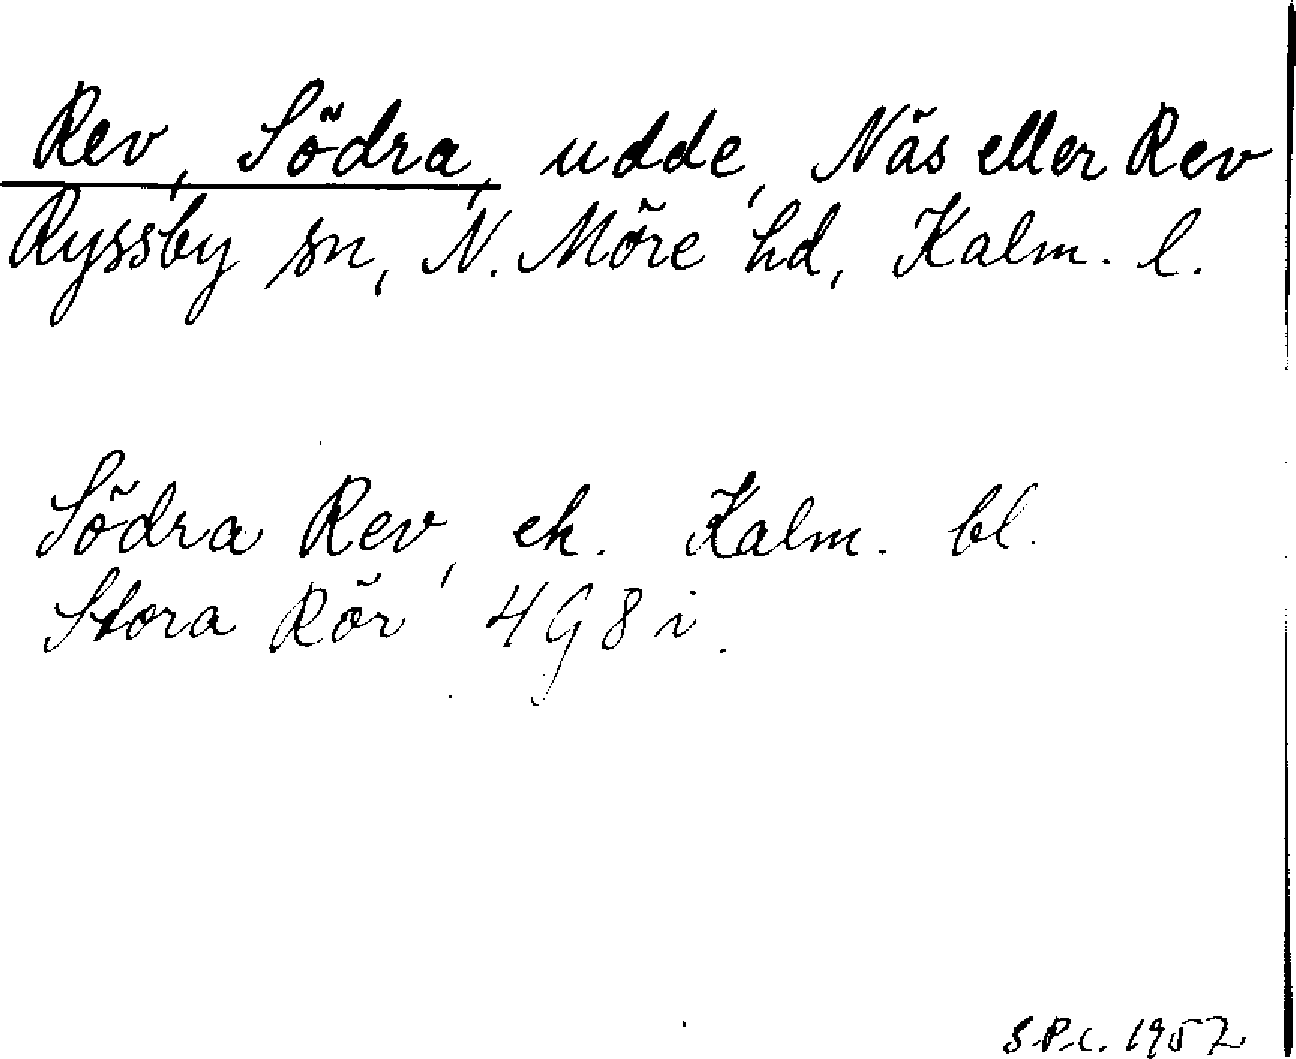 Rev, Södra, udde, Näs eller Rev
Ryssby sn, N. Möre hd, Kalm. l.
Södra Rev, ek. Kalm. bl.
Stora Rör 4 G 8 i.
1952